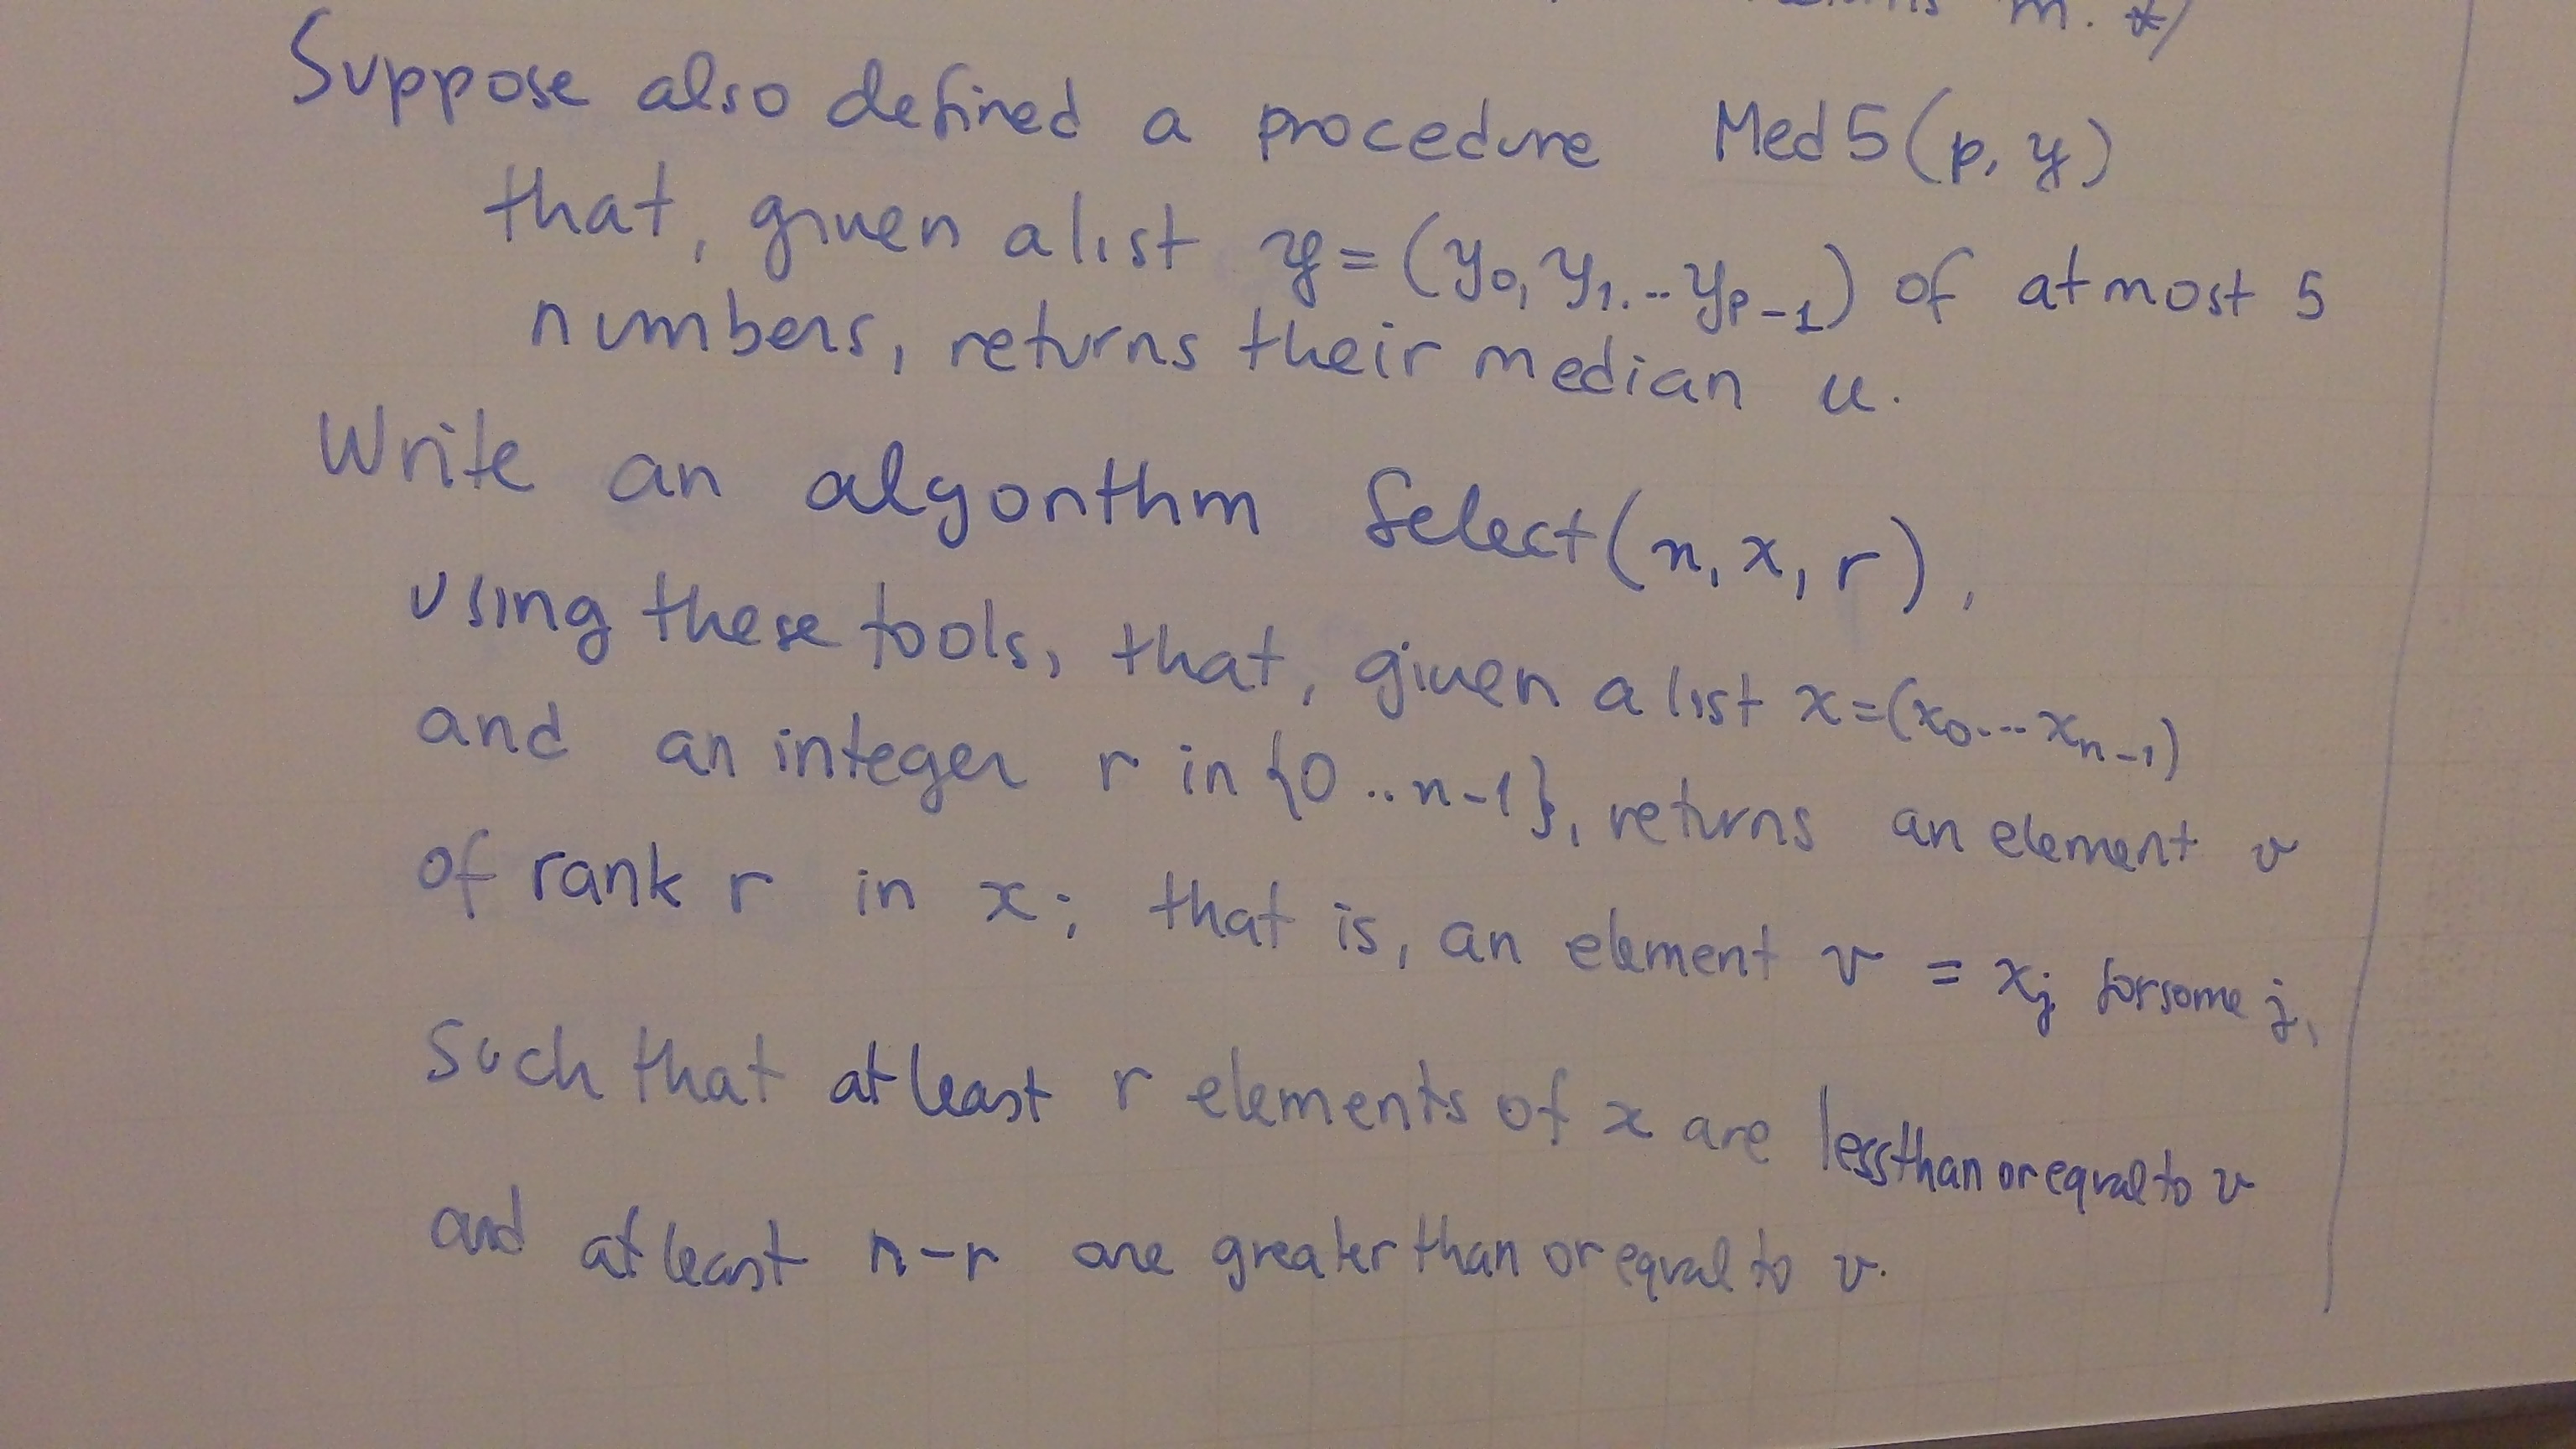 m. */
Suppose also defined a procedure Med5(p, y)
that, given a list y = (y₀, y₁, ... yₚ₋₁) of at most 5
numbers, returns their median u.
Write an algorithm Select(n, x, r),
using these tools, that, given a list x=(x₀...xₙ₋₁)
and an integer r in {0..n-1}, returns an element v
of rank r in x; that is, an element v = xⱼ for some j,
such that at least r elements of x are less than or equal to v
and at least n-r are greater than or equal to v.